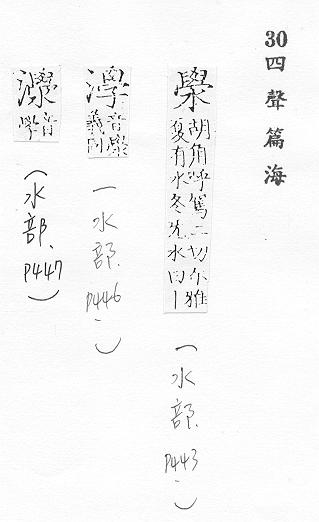 30四聲篇海
澩
胡角呼篤二切尔雅
夏有水冬无水曰丨
(水部、P443)
音澩
義同
(水部、P446)
音
學
(水部、P447)